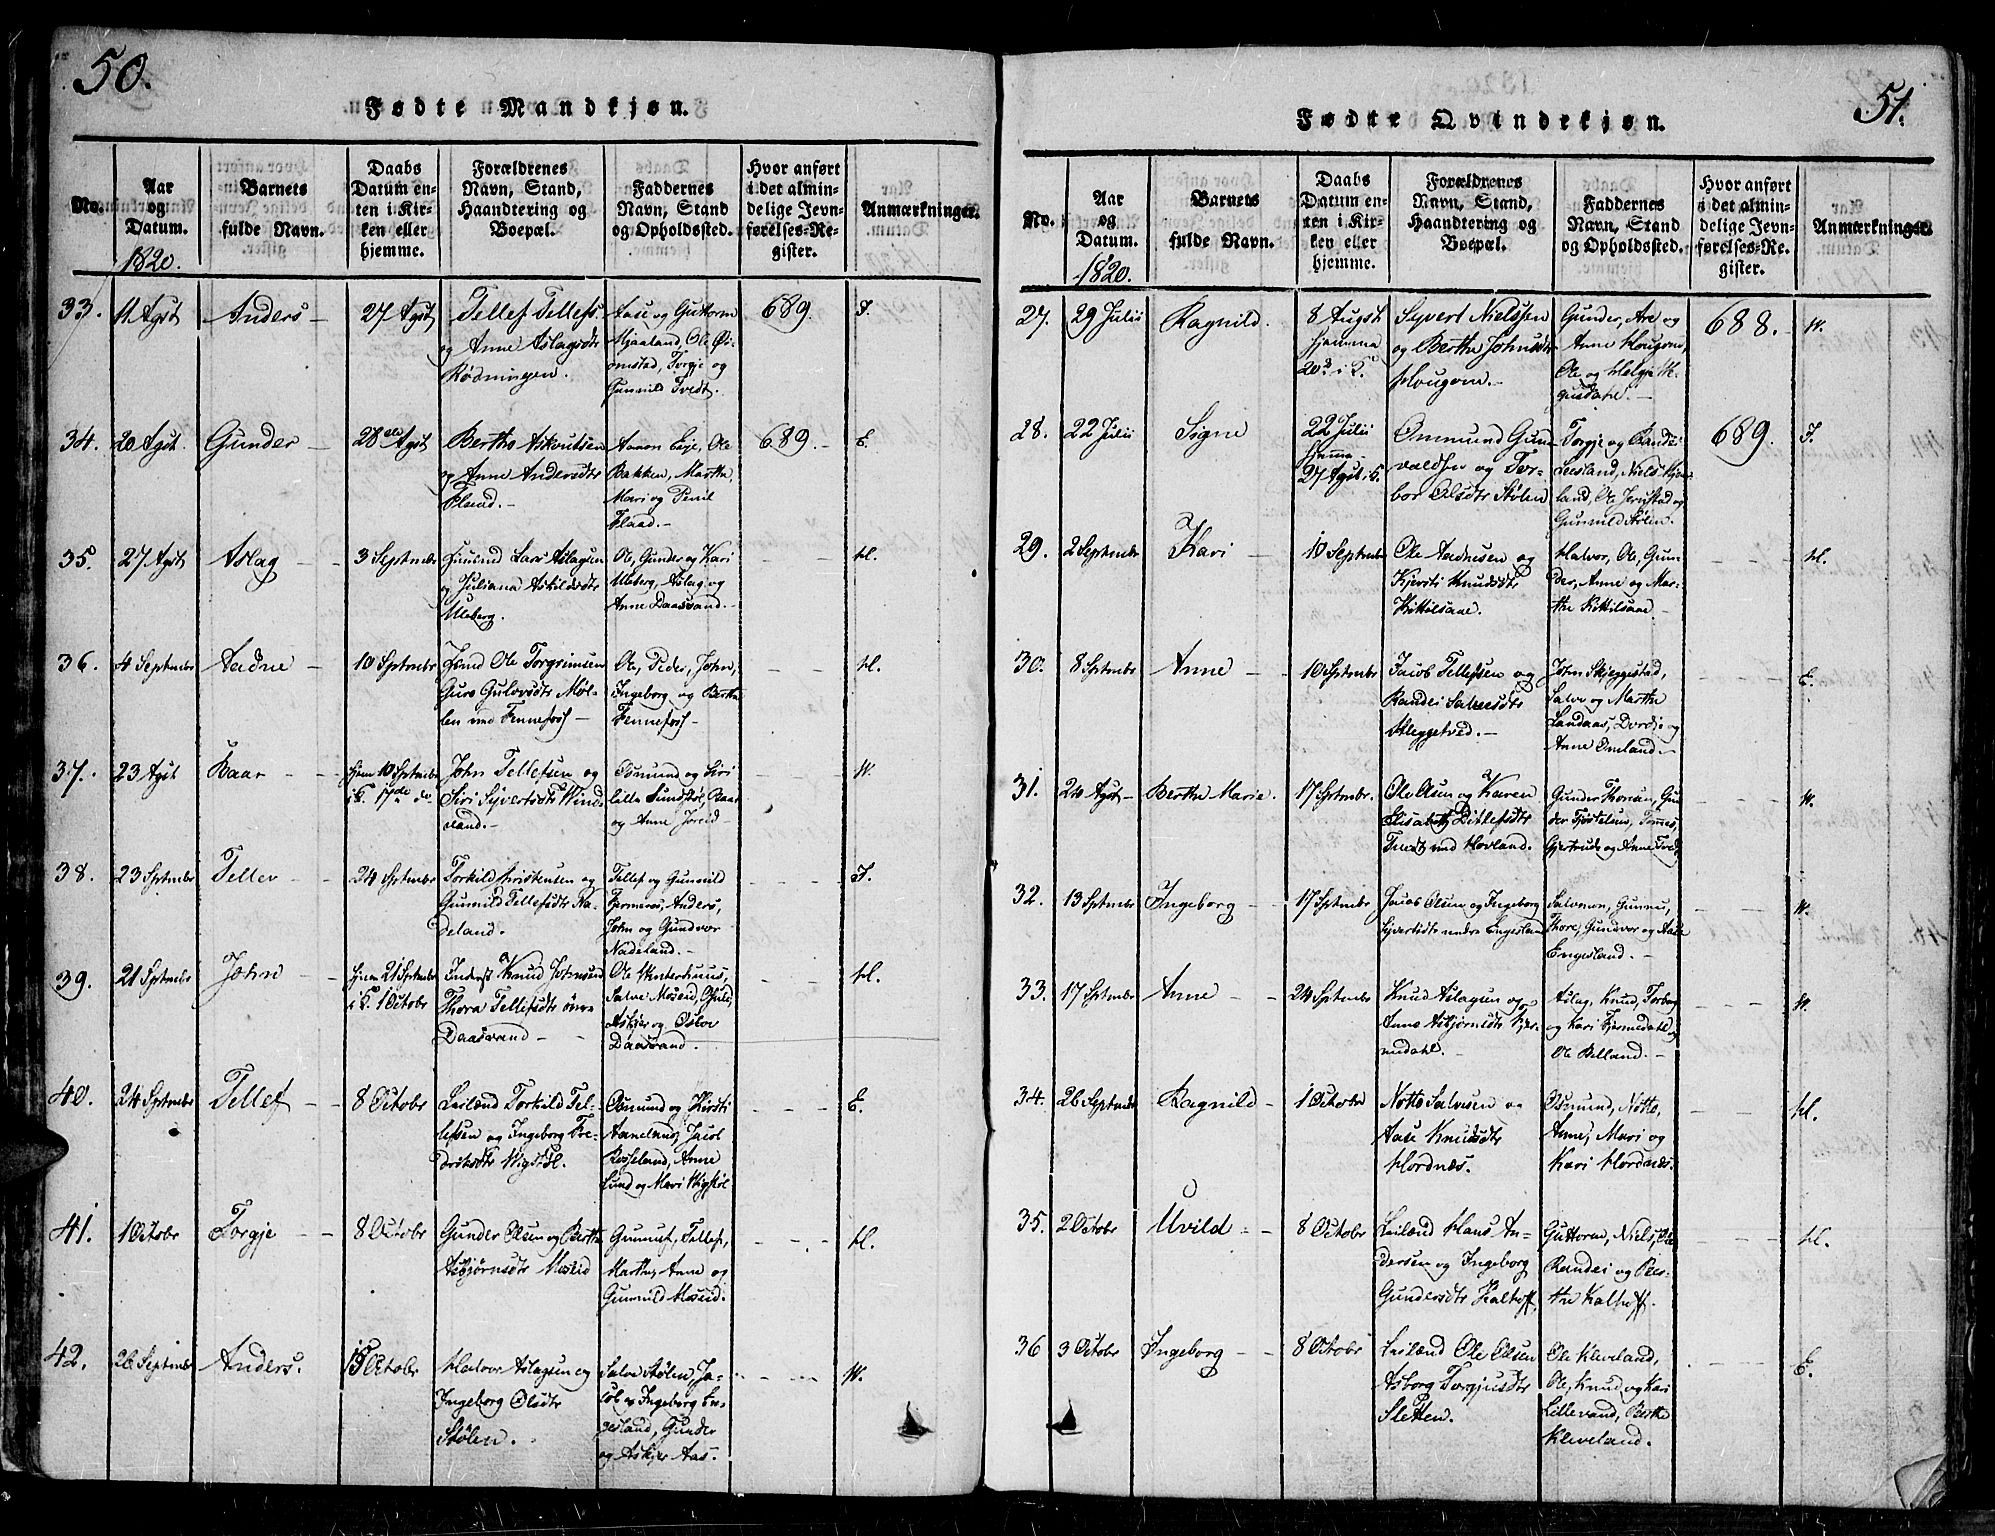 50.
Fødte Mandkjøn.
No.
Aar
og
Datum.
1820.
Barnets
fulde Navn.
Daabs
Datum en-
ten i Kir-
ken eller
hjemme.
Forældrenes
Navn, Stand,
Haandtering og
Boepæl.
Faddernes
Navn, Stand
og Opholdssted.
Hvor anført
i det almin-
delige Jevn-
førelses-Re-
gister.
Anmærkninger.
33.
11 Agst
Anders
27 Agst
Tellef Tellefs.
og Anne Aslagsdtr
Rødningen.
Aase og Guttorm
Mjaaland, Ole Øi-
omstad, Torgje og
Gunnild Tvedt.
689.
I.
34.
20 Agst
Gunder
28de Agst
Berthe Askoutsen
og Anne Andersdtr
Flaad.
Aanon Eeje, Ole
Bakken, Marthe,
Mari og Penil
Flaad.
689.
E.
35.
27 Agst
Aslag
3 Septmbr
Lars Aslagsen
og Juliana Askildsdtr
Uleberg.
Ole, Gunder og Kari
Uleberg, Aslag og
Anne Daasvand.
H.
36.
4 Septmbr
Aadne
10 Septmbr
Ole Torgrimsen
Guro Gulovsdtr Møl-
len ved Fennefoss
Ole, Peder, John,
Ingeborg og Berthe
Fennefoss
H.
37.
23 Agst
Baar
hjem 10 Septmbr
i K. 17de do
John Tellefsen og
Siri Syvertsdtr Vind-
land.
Osmund og Siri
lille Sundstøl, Baar
og Anne Joreid
W.
38.
23 Septmbr
Tellev
24 Septmbr
Torkild Christensen og
Gunnild Tellefsdtr Na-
deland.
Tellef og Gunnild
Fjermeros, Anders,
John og Gundvor
Nadeland.
I.
39.
21 Septmbr
John
hjem 21 Septmbr
i K. 1 Octobr
Inderst Knud Johnsen
Thora Tellefsdtr øvre
Daasvand
Ole Vinterhuus,
Salve Moseid, Ofuld,
Askjer og Oslov
Daasvand.
H.
40.
24 Septmbr
Tellef
8 Octobr
Leilænd Torkild Tel-
lefsen og Ingeborg Fre-
driksdtr Vigstøl.
Osmund og Kirsti
Aaneland, Jacob
Rosseland, Anne
Lund og Mari Vigstøl
E.
41.
1 Octobr
Torgje
8 Octobr
Gunder Olsen og Berthe
Asbjørnsdtr Moseid
Gunnuf, Tellef,
Marthe, Anne og
Gunnild Moseid.
H.
42.
26 Septmbr
Anders.
15 Octobr
Halvor Aslagsen og
Ingeborg Olsdtr
Stølen.
Salve Stølen, Ja-
cob og Ingeborg En-
gesland, Gunder
og Askjer Aas.
W.
51.
Fødte Qvindekjøn.
No.
Aar
og
Datum.
1820.
Barnets
fulde Navn.
Daabs
Datum en-
ten i Kir-
ken eller
hjemme.
Forældrenes
Navn, Stand,
Haandtering og
Boepæl.
Faddernes
Navn, Stand
og Opholdssted.
Hvor anført
i det almin-
delige Jevn-
førelses-Re-
gister.
Anmærkninger.
27.
29 Julii
Ragnild.
8 Augst
hjemme
20de i K.
Syvert Nielssen
og Berthe Johnsdtr
Hougom.
Gunder, Are og
Anne Hougom,
Ole og Helje
688.
W.
28.
22 Julii
Signe
22 Julii
hjemme
27 Agst i K.
Ommund Gun-
valdsen og Tor-
bor Olsdtr Stølen
Torgje og Randei
Liesland, Niels
land, Ole Jerustad og
Gunnild Stølen.
689.
I.
29.
2 Septembr
Kari
10 Septembr
Ole Aadnesen og
Kjersti Knudsdtr
Kittilsaae.
Halvor, Ole, Gun-
der, Anne og Mar-
the Kittilsaae
H.
30.
8 Septmbr
Anne
10 Septmbr
Jacob Tellefsen og
Randei Salvesdtr
Heggetved.
John Skjeggestad,
Salve og Marthe
Landaas, Dordi og
Anne Omland.
E.
31.
24 Agst
Berthe Marie.
17 Septmbr.
Ole Olsen og Karen
Elisabeth Ditlefsdtr
Tvedt ved Hovland.
Gunder Thorsen, Gun
der Tjostelsen, Tommes,
Gjertrude og Anne Tvedt
W.
32.
13 Septmbr
Ingeborg
17 Septmbr
Jacob Olsen og Ingeborg
Syvertsdtr nedre Engesland
Salomon, Gunnu,
Thore, Gundvor og Aase
Engesland.
W.
33.
17 Septmbr
Anne
24 Septmbr
Knud Aslagsen og
Anne Asbjørnsdtr Fjer-
medahl.
Aslag, Knud, Torborg
og Kari Fjermedahl og
Ole Birkeland.
W.
34.
26 Septmbr
Ragnild
1 Octobr
Notto Salvesen og
Aase Knudsdtr
Hordnæs.
Osmund, Notto,
Anne, Mari og
Kari Hordnæs.
H.
35.
2 Octobr
Uvild
8 Octobr
Leilænd Hans An-
dersen og Ingeborg
Gundersdtr Kalhoff
Guttorm, Niels, Ole
Randei og Ber-
the Kalhoff.
H.
36
3 Octobr
Ingeborg
8 Octobr
Leilænd Ole Olsen
Asborg Torgjusdtr
Sletten.
Ole Kleveland,
Ole, Knud og Kari
Lillevand, Berthe
Kleveland.
E.